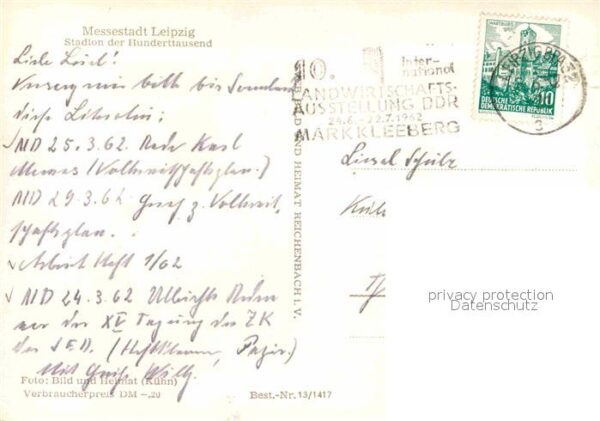 Messestadt Leipzig
Stadion der Hunderttausend
Liebe Liesel!
mir bitte bis
diese
ND 25.3.62. Rede Karl
Mewes (Volkswirtschaftsplan.)
ND 29.3.62 Gesetz z. Volkswirt-
schaftsplan.
Arbeit Heft 1/62
ND 24.3.62 Ulbrichts Reden
vor der XV Tagung des ZK
der SED. (Heftklammer, Papier.)
Mit Gruß Willy.
Foto: Bild und Heimat (Kühn)
Verbraucherpreis DM -,20
Best.-Nr. 13/1417
BILD UND HEIMAT REICHENBACH I. V.
10.
Inter-
national
LANDWIRTSCHAFTS-
AUSSTELLUNG DDR
24.6.-22.7.1962
MARKKLEEBERG
WARTBURG
DEUTSCHE
DEMOKRATISCHE REPUBLIK
10
LEIPZIG
3
Liesel Schulz
privacy protection
Datenschutz